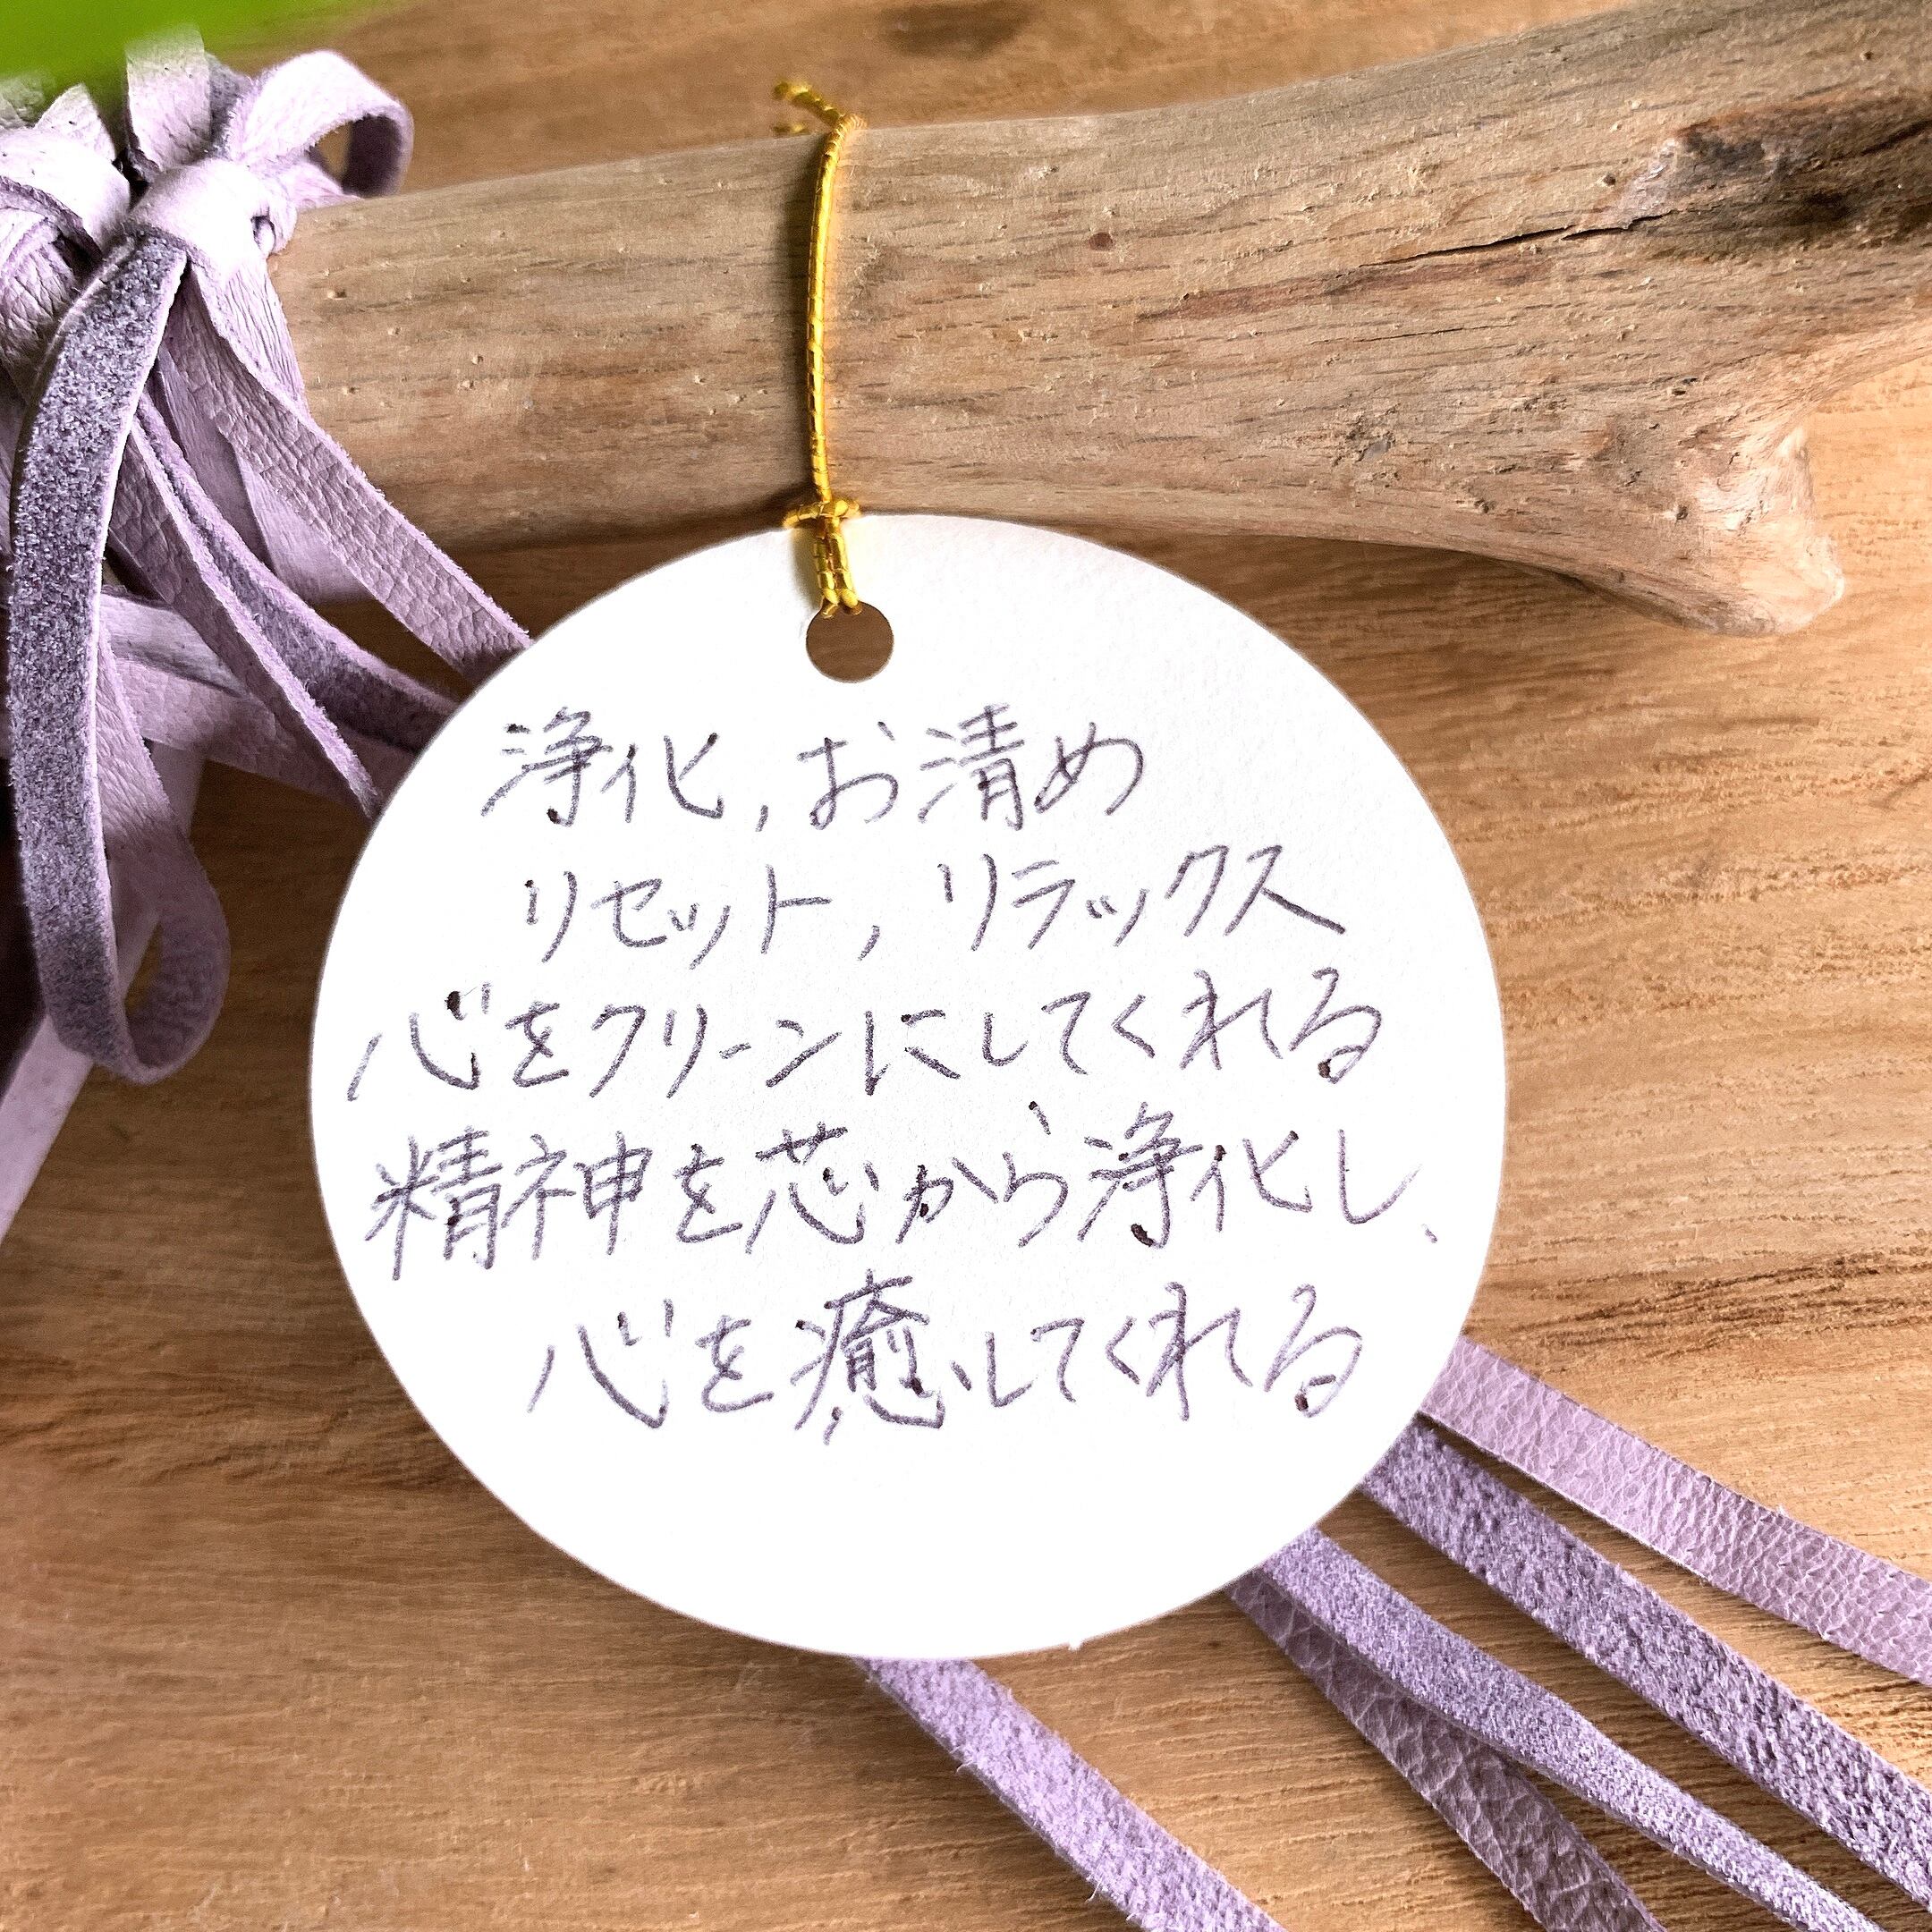 浄化,お清め
リセット,リラックス
心をクリーンにしてくれる
精神を芯から浄化し、
心を癒してくれる